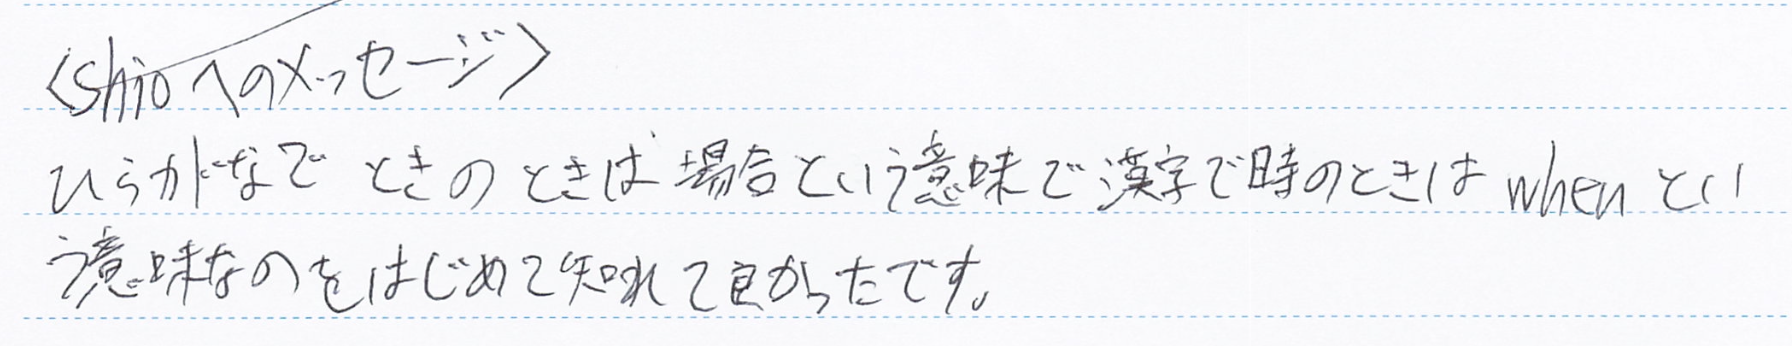 <shioへのメッセージ>
ひらがなで ときのときは場合という意味で漢字で時のときはwhenとい
う意味なのをはじめて知れて良かったです。